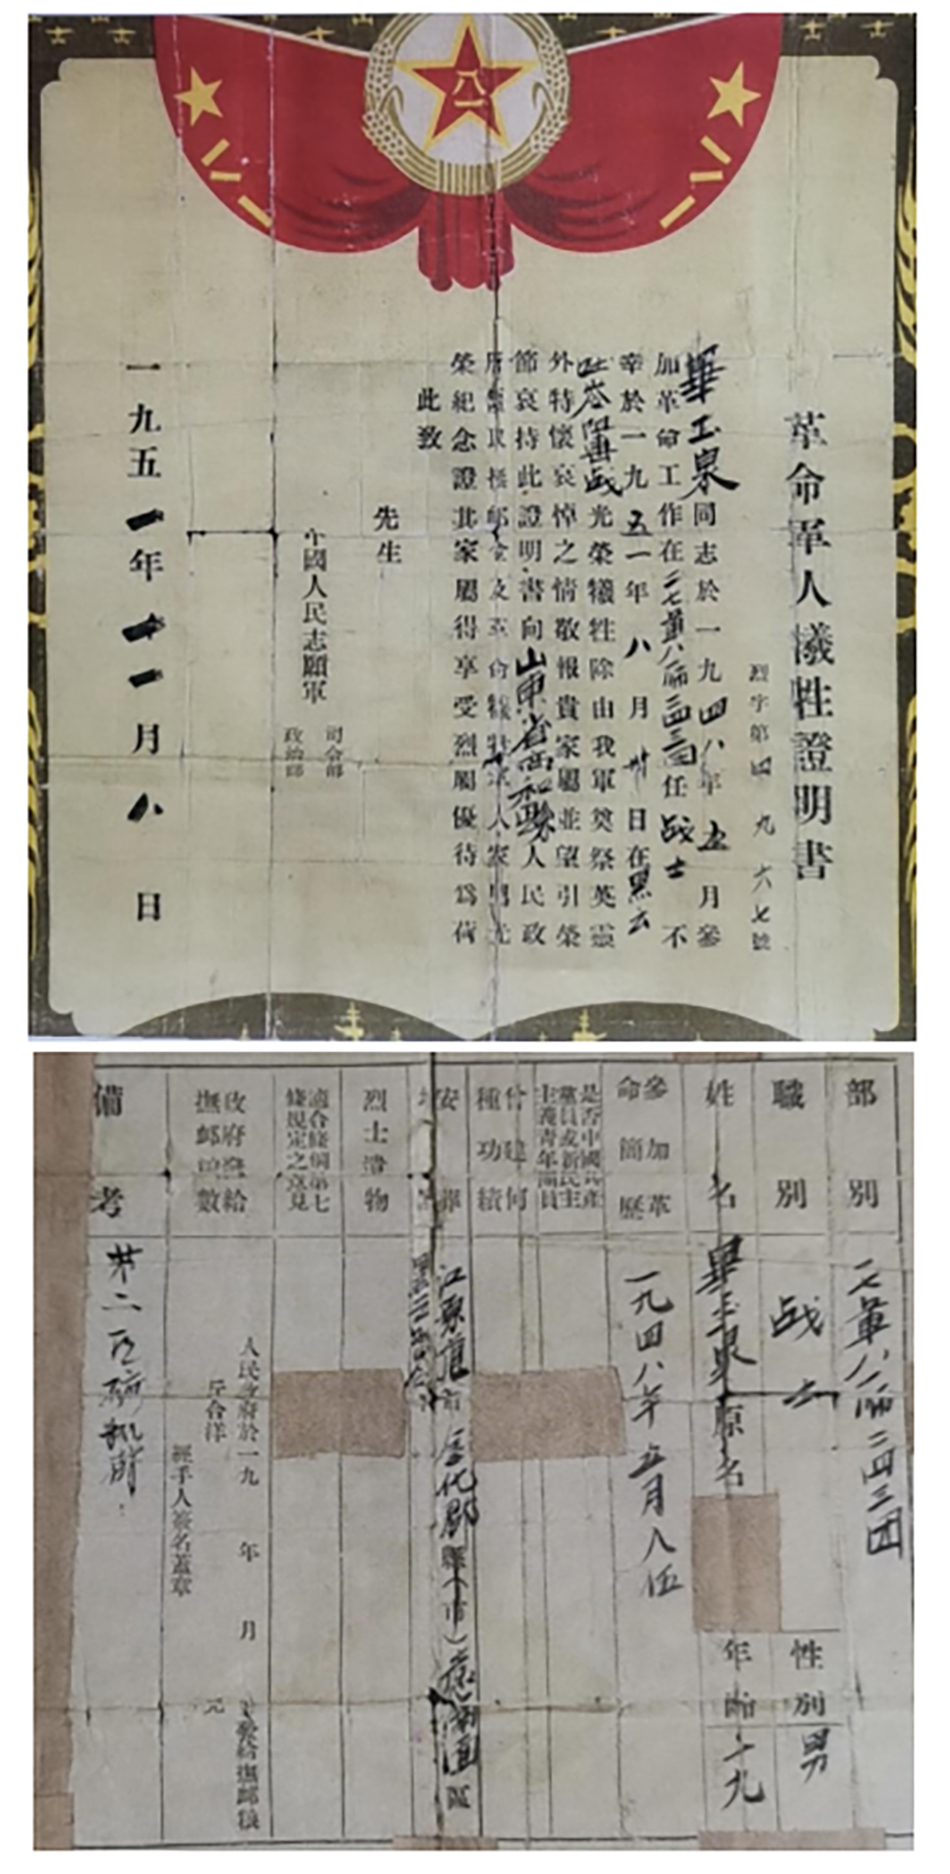 八一
革命軍人犧牲證明書
烈字第四九六七號
畢玉泉同志於一九四八年五月參
加革命工作在二七軍八一師二四三團任战士不
幸於一九五一年八月卅日在黑云
吐岺阻击战光榮犧牲除由我軍奠祭英靈
外特懷哀悼之情敬報貴家屬並望引榮
節哀持此證明書向山東省西和縣人民政
府領取撫卹金及革命犧牲軍人家屬光
榮紀念證其家屬得享受烈屬優待為荷
此致
先生
中國人民志願軍
司令部
政治部
一九五一年十一月八日
部別
二七軍八一師二四三团
職別
战士
性別
男
姓名
畢玉泉原名
年齡
十九
參加革命簡歷
一九四八年五月入伍
是否中國共產黨員或新民主主義青年團員
曾建何種功績
安葬
江原道市
縣(市)
區
烈士遺物
適合條例第七條規定之意見
政府發給撫卹糧數
人民政府於一九 年 月 發給撫卹糧
斤合洋 元
經手人簽名蓋章
備考
第二区